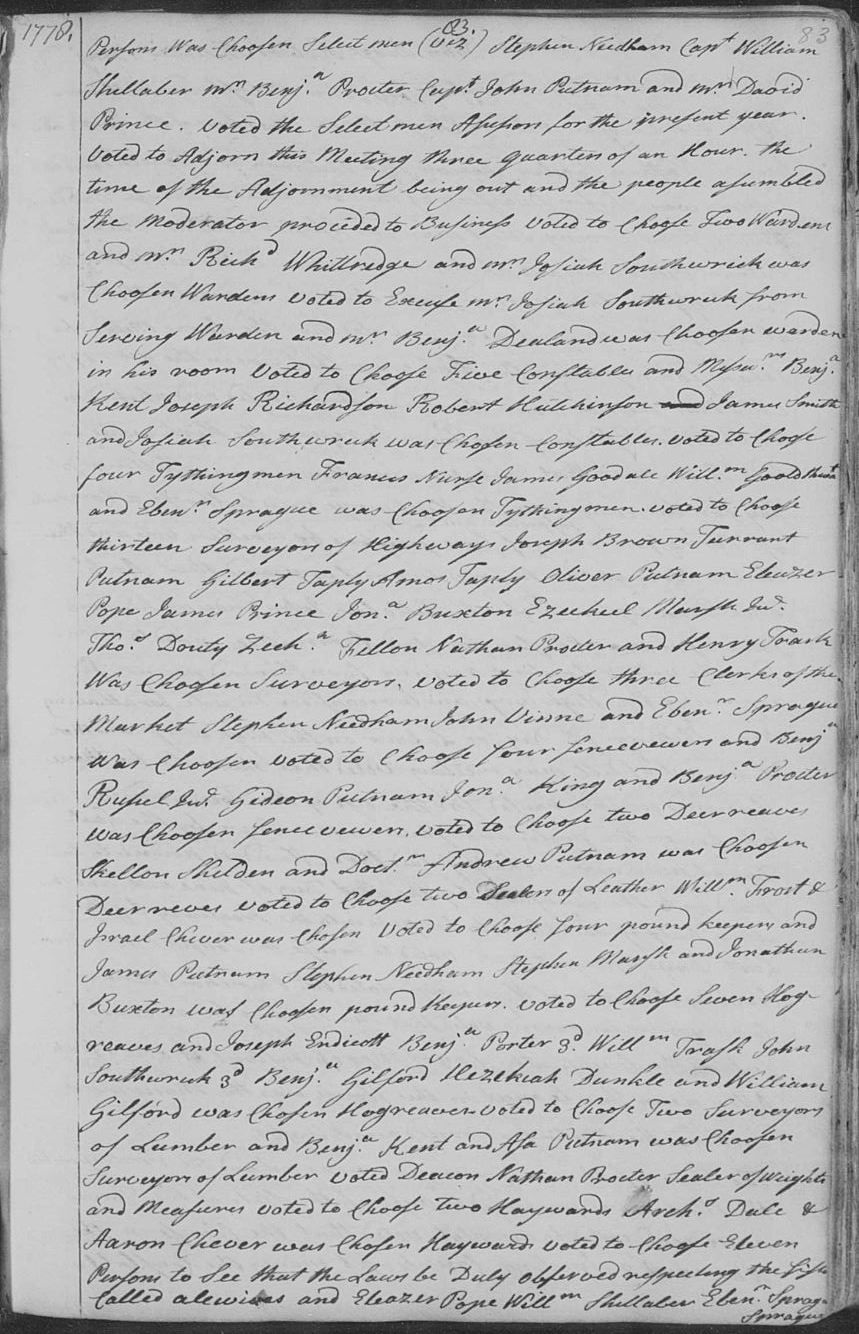 1778.
83.
83
Persons Was Choosen Select men (viz) Stephen Needham Capt William
Shellaber mr. Benj.a Procter Capt. John Putnam and mr. David
Prince. Voted the Select men Assessors for the present year.
Voted to Adjorn this Meeting three quarters of an Hour. the
time of the Adjornment being out and the people asumbled
the moderator proceded to Business Voted to Choose Two Wardens
and mr. Richd Whittredge and mr. Josiah Southwick was
Choosen Wardens Voted to Excuse mr. Josiah Southwick from
Serving Warden and mr. Benj.a Dealand was Choosen warden
in his room Voted to Choose Five Constables and Messrs. Benj.a
Kent Joseph Richardson Robert Hutchinson and James Smith
and Josiah Southwick was Chosen Constables. voted to Choose
four Tythingmen Francis Nurse James Goodale Will.m Goold
and Eben.r Sprague was Choosen Tythingmen. voted to Choose
thirteen Surveyors of Highways Joseph Brown Tarrant
Putnam Gilbert Taply Amos Taply Oliver Putnam Eleazer
Pope James Prince Jon.a Buxton Ezechel Marsh Jur.
Tho.s Douty Zech.a Fellon Nathan Procter and Henry Trask
Was Choosen Surveyors. voted to Choose three Clerks of the
Market Stephen Needham John Vinne and Eben.r Sprague
Was Choosen voted to Choose four fencevewers and Benj.a
Russel Jur. Gideon Putnam Jon.a King and Benj.a Procter
was Choosen fence vewers. voted to Choose two Deerreaves
Skelton Shelden and Doct.r Andrew Putnam was Choosen
Deerreves voted to Choose two Sealers of Leather Willm. Frost &
Israel Chever was Chosen Voted to Choose four pound keepers and
James Putnam Stephen Needham Stephen Marsh and Jonathan
Buxton was Choosen pound Keepers. voted to Choose Seven Hog-
reaves and Joseph Endicott Benj.a Porter 3d. Will m Trask John
Southwick 3d Benj.a Gilford Hezekiah Dunkle and William
Gilford was Chosen Hogreaves voted to Choose Two Surveyors
of Lumber and Benj.a Kent and Asa Putnam was Choosen
Surveyors of Lumber voted Deacon Nathan Procter Sealer of Weights
and Measures voted to Choose two Haywards Arch.s Dale &
Aaron Chever was Chosen Haywards voted to Choose Eleven
Persons to See that the Laws be Duly observed respecting the fish
Called alewives and Eleazer Pope Will m Shillaber Eben.r Sprague
Sprague